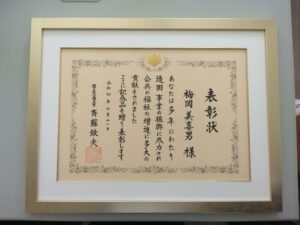 表彰状
梅岡 美喜男 様
あなたは多年にわたり
造園事業の振興に尽力され
公共の福祉の増進に多大の
貢献をされました
ここに記念品を贈り表彰します
令和四年七月十一日
国土交通大臣 斉藤鉄夫